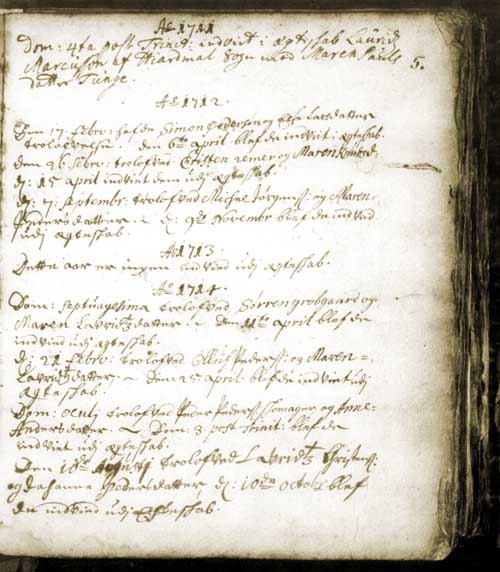 Ao 1711
Dom: 4ta post Trinit: indviet i ægteskab Laurids
Marcusøn af Hiardmal Sogn med Maren Pouls
datter Tunge.
5.
Ao 1712.
Den 17 Febr: hafde Simon Pedersøn og Else Larsdatter
trolofvelse. den 6te april blef de indviet i ægteskab.
den 26 Febr: trolofved Cristen og Maren
d: 15 april indviet dem udj ægteskab.
d: 7 Septembr: trolofved Michel Jørgens: og Maren
Andersdatter. d: 9de Novembr blef de indvied
udj ægteskab.
Ao 1713.
Dette aar er ingen indvied udj ægteskab.
Ao 1714.
Dom: Septuagesima trolofved Sørren grobgaard og
Maren Lavridtzdatter. Den 11te april blef de
indvied udj ægteskab.
d: 21 Febr: trolofved Oluf Peders: og Maren
Lavridtzdatter. Den 25 april blef de indviet udj
ægteskab.
Dom: Oculj trolofved Peder Peders: og Anne
Andersdatter. Dom: 3 post Trinit: blef de
indviet udj ægteskab.
Den 18de Augustj trolofved Lavridtz Christens:
og Johanne Andersdatter, d: 10de Octobr blef
de indvied udj Ægteskab.